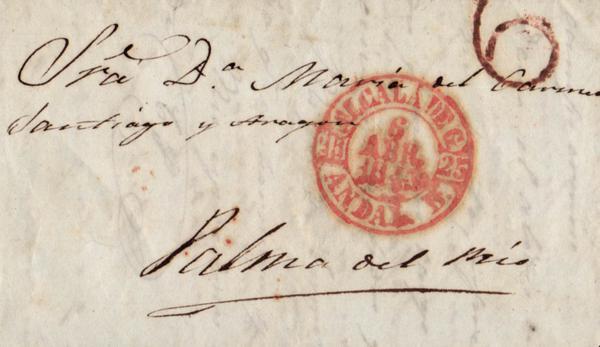 6
Sra. Dª María del Carmen
Santiago y Aragon
ALCALA D G
6
ABR
25
ANDA. B.
Palma del Rio